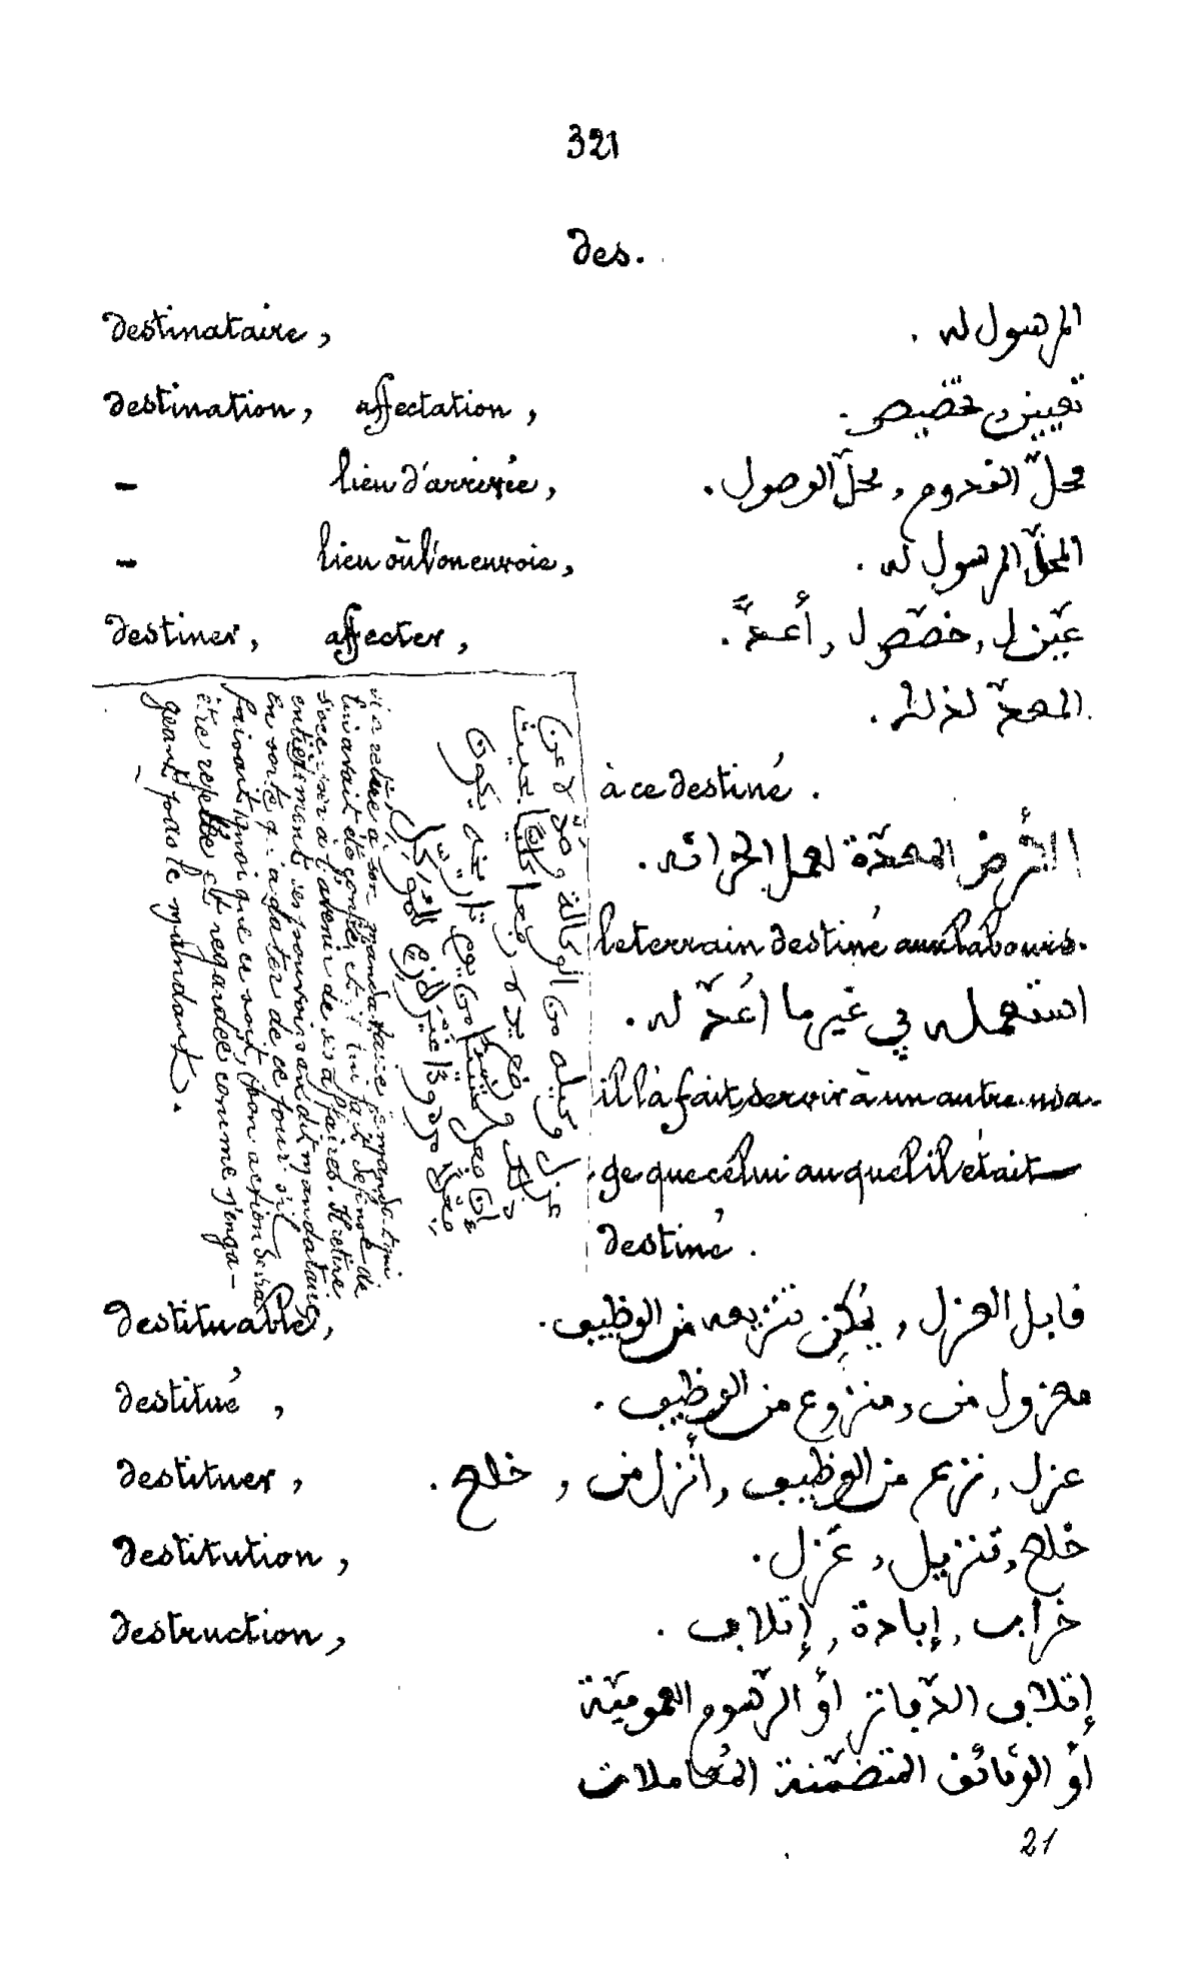 321
des.
destinataire, المرسول له .
destination, affectation, تعيين, تخصيص.
- lieu d'arrivée, محلّ القدوم, محلّ الوصول.
- lieu où l'on envoie, المحلّ المرسول له .
destiner, affecter, عيّن ل, خصّص ل, أعدّ.
المعدّ لذلك.
à ce destiné.
الأرض المعدّة لعمل الحراثة.
le terrain destiné aux labours.
استعمله في غير ما أُعدّ له.
il l'a fait servir à un autre usa-
ge que celui auquel il était
destiné.
عزل وكيله من الوكالة
a retiré à son mandataire le mandat qui
lui avait été confié, et lui fait défense de
s'occuper à l'avenir de ses affaires. Il retire
entièrement ses pouvoirs audit mandataire
en sorte qu'à dater de ce jour s'il
faisait quoique ce soit, son action sera
être rejetée et regardée comme n'enga-
geant pas le mandant.
destituable, قابل العزل, يُمكن تنزيعه من الوظيف.
destitué, معزول من, منزوع من الوظيف.
destituer, عزل, نزع من الوظيف, أنزل من, خلع.
destitution, خلع, تنزيل, عزل.
destruction, خراب, إبادة, إتلاف.
إتلاف الدفاتر أو الرسوم العموميّة
أو الوثائق المتضمّنة المُعاملات
21